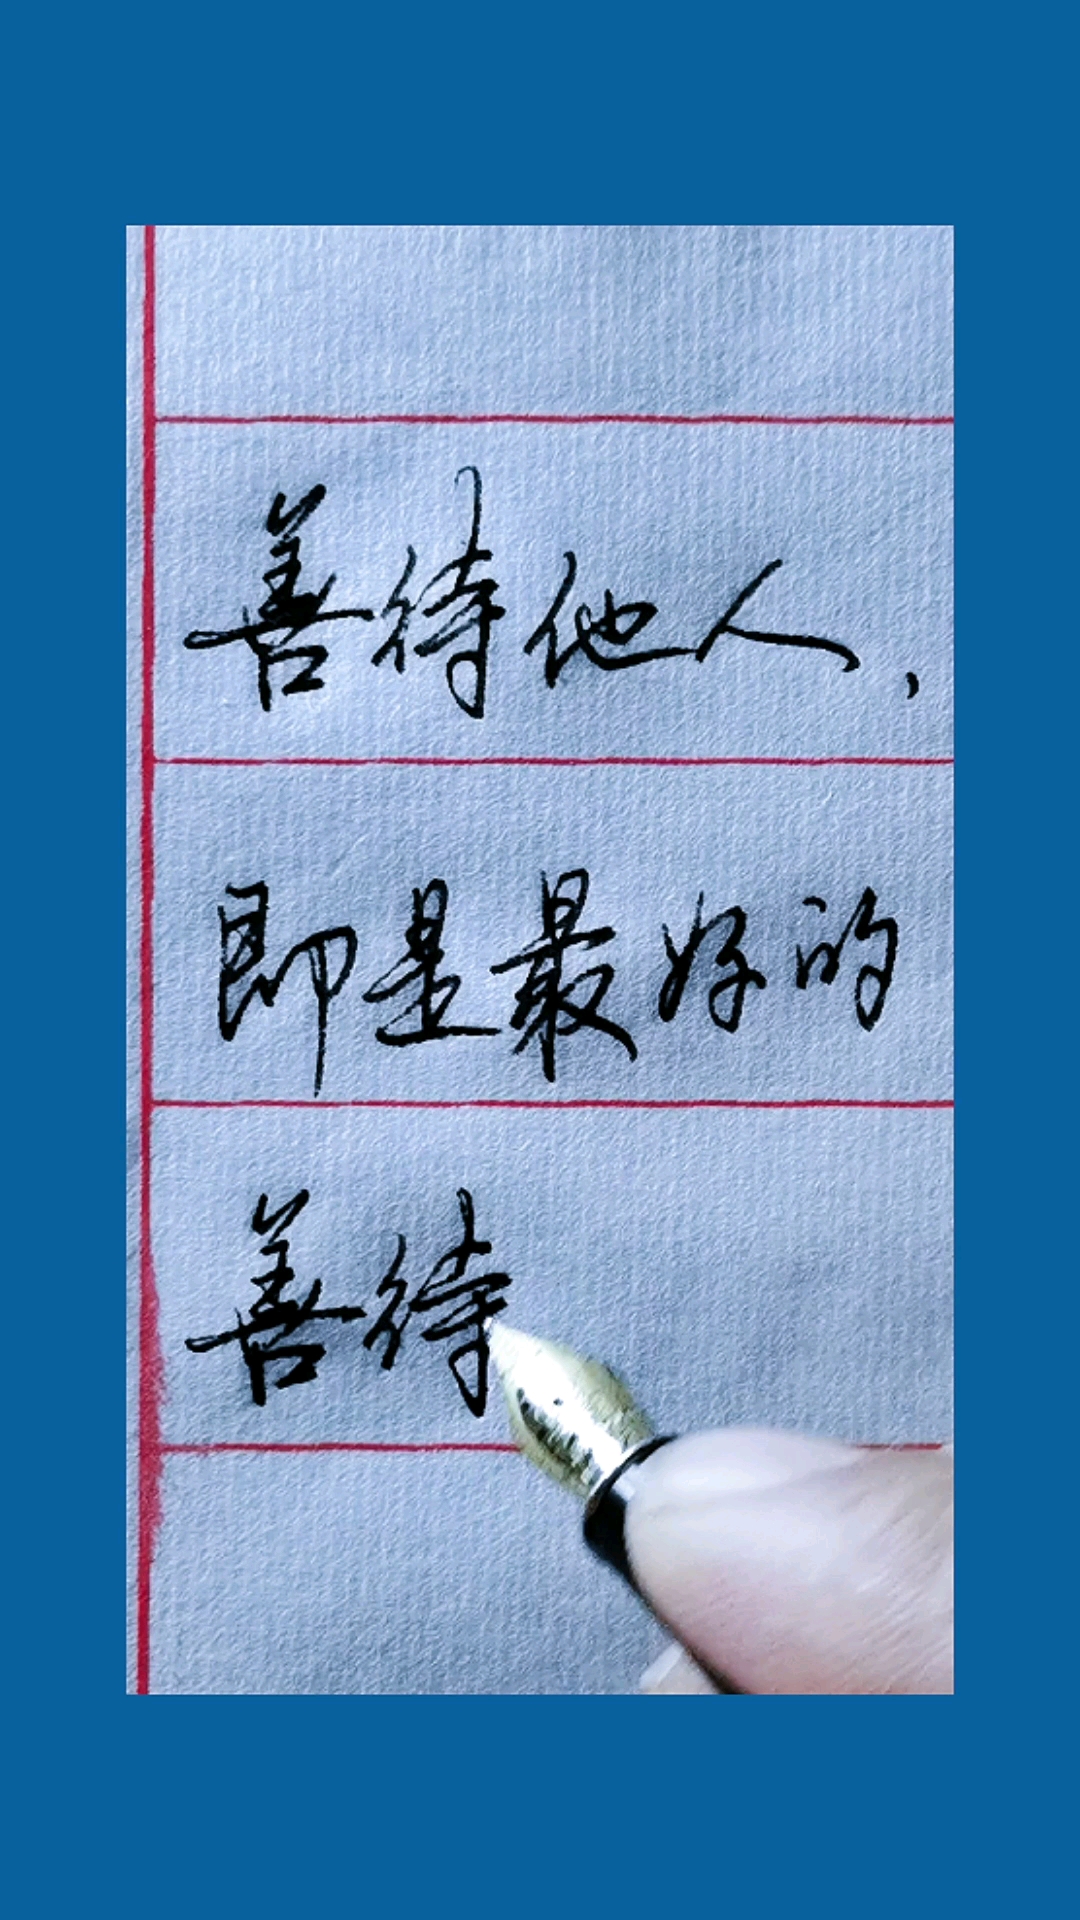 善待他人，
即是最好的
善待